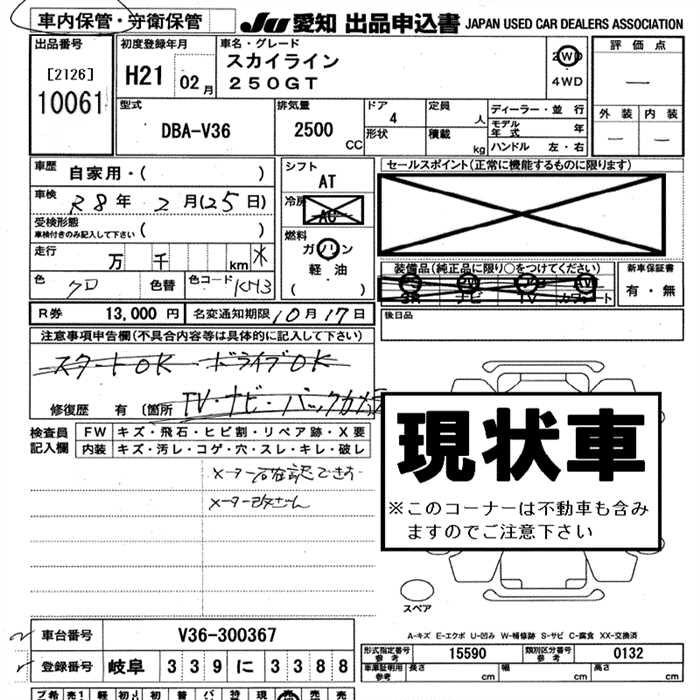 車内保管・守衛保管
JU 愛知 出品申込書 JAPAN USED CAR DEALERS ASSOCIATION
出品番号
[2126]
10061
初度登録年月
H21 02月
車名・グレード
スカイライン
250GT
2WD
4WD
評価点
—
外装 内装
— —
型式
DBA-V36
排気量
2500 CC
ドア
4
形状
定員
人
積載
kg
ディーラー・並行
モデル年式 年
ハンドル 左・右
車歴 自家用・( )
車検 R8年 2月(25日)
受検形態
車検付きのみ記入して下さい ( )
走行 万 千 km
色 クロ 色替 色コード KH3
シフト
AT
冷房
AC
燃料
ガソリン
軽油
( )
セールスポイント(正常に機能するものに限ります)
装備品(純正品に限り○をつけてください)
ナビ TV
新車保証書
有・無
後日品
R券 13,000 円 名変通知期限 10月17日
注意事項申告欄(不具合内容等は具体的に記入して下さい)
スタートOK ドライブOK
修復歴 有 [箇所 TV・ナビ・バックカメラ
検査員記入欄
FW キズ・飛石・ヒビ割・リペア跡・X要
内装 キズ・汚レ・コゲ・穴・スレ・キレ・破レ
メーター確認できず
メーター改ざん
現状車
※このコーナーは不動車も含みますのでご注意下さい
スペア
A-キズ E-エクボ U-凹み W-補修跡 S-サビ C-腐食 XX-交換済
車台番号 V36-300367
登録番号 岐阜 339 に 3388
形式指定番号 参考 15590 類別区分番号 参考 0132
車庫証明用 参考 長さ cm 幅 cm 高さ cm